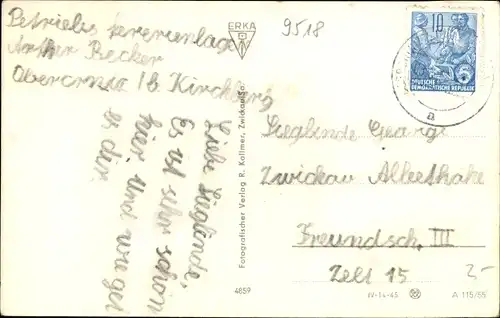 Betriebsferienlager
Arthur Becker
Obercrinitz / b Kirchberg
Liebe Sieglinde,
Es ist sehr schön
hier und wie get
es dir.
ERKA
9518
Fotografischer Verlag R. Kallmer, Zwickau/Sa.
4859
10
DEUTSCHE
DEMOKRATISCHE REPUBLIK
a
Sieglinde Georgi
Zwickau
Freundsch. III
Zelt 15
2,-
IV-14-45
A 115/55